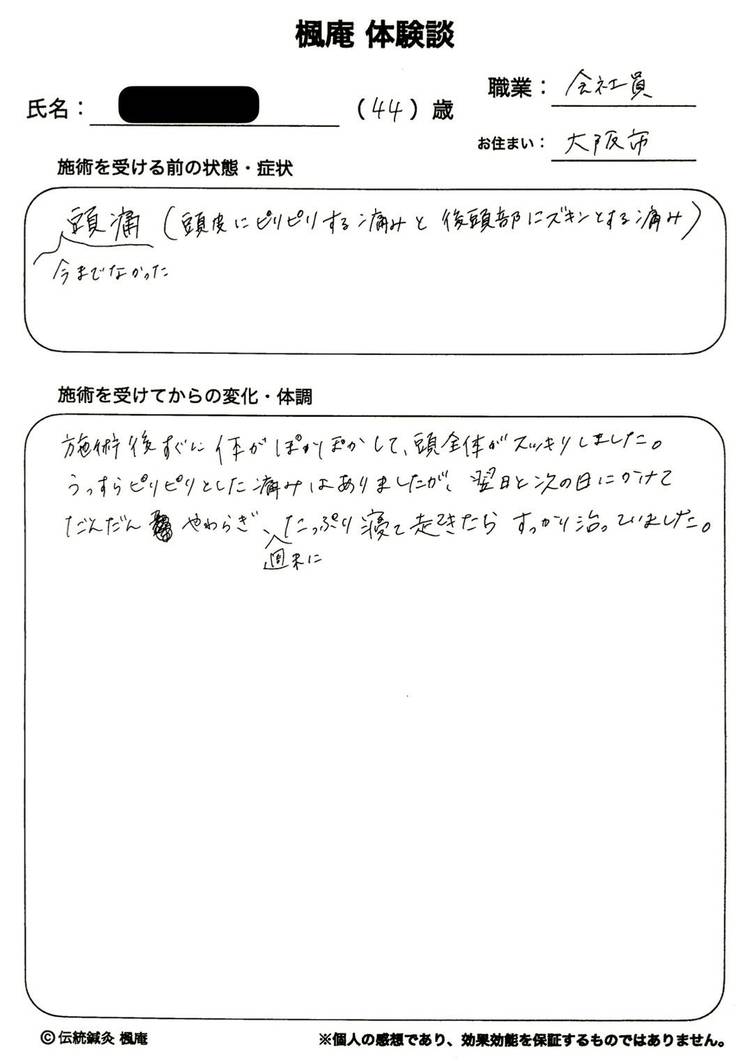 楓庵 体験談
職業： 会社員
氏名： （44）歳
お住まい： 大阪市
施術を受ける前の状態・症状
頭痛（頭皮にピリピリする痛みと後頭部にズキンとする痛み）
今までなかった
施術を受けてからの変化・体調
施術後すぐに体がぽかぽかして、頭全体がスッキリしました。
うっすらピリピリとした痛みはありましたが、翌日と次の日にかけて
だんだん やわらぎ、たっぷり寝て起きたら すっかり治っていました。
週末に
© 伝統鍼灸 楓庵
※個人の感想であり、効果効能を保証するものではありません。